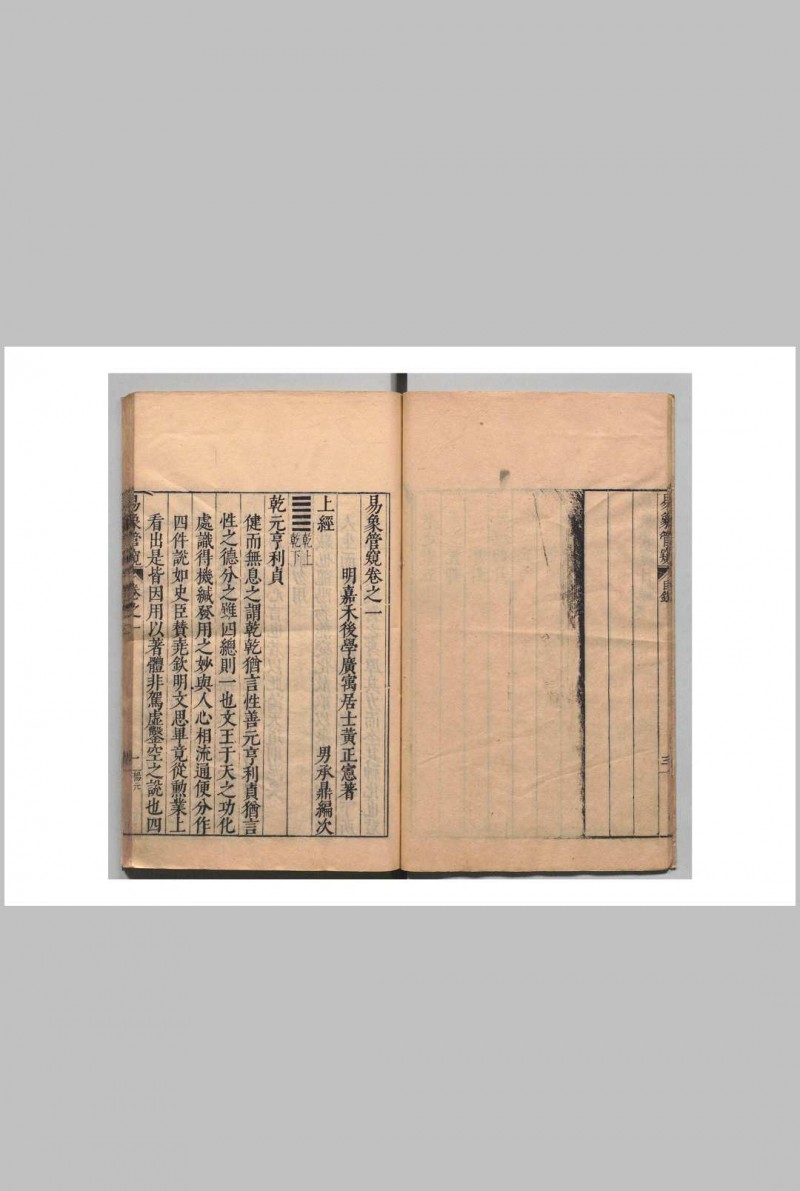 易象管窺 目錄
三
易象管窺卷之一
明嘉禾後學廣寓居士黃正憲著
上經 男承鼎編次
乾上
乾下
乾元亨利貞
健而無息之謂乾乾猶言性善元亨利貞猶言
性之德分之雖四總則一也文王于天之功化
處識得機緘發用之妙與人心相流通便分作
四件說如史臣贊堯欽明文思畢竟從勲業上
看出是皆因用以著體非駕虛鑿空之說也四
易象管窺 卷之一
一